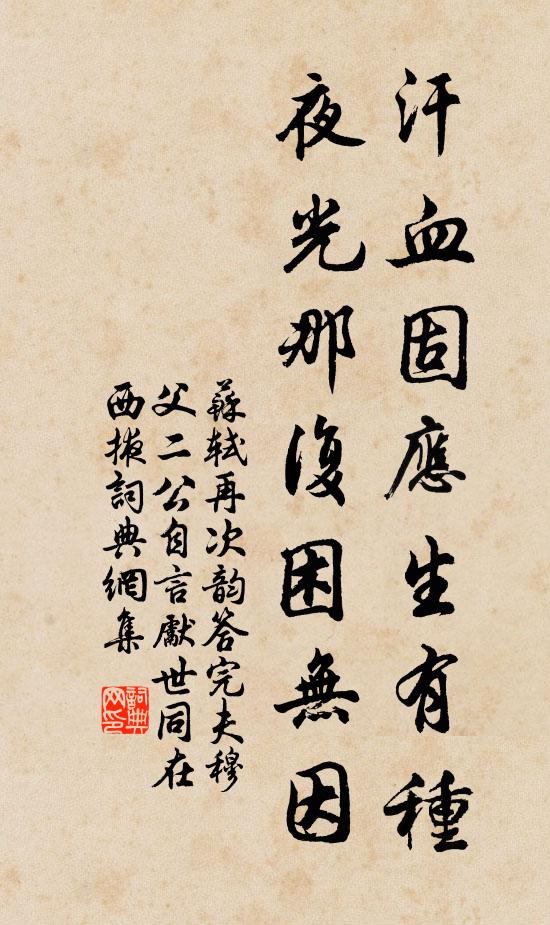 汗血固應生有種
夜光那復困無因
蘇軾再次韵答完夫穆
父二公自言獻世同在
西掖詞典網集
詞典
网印